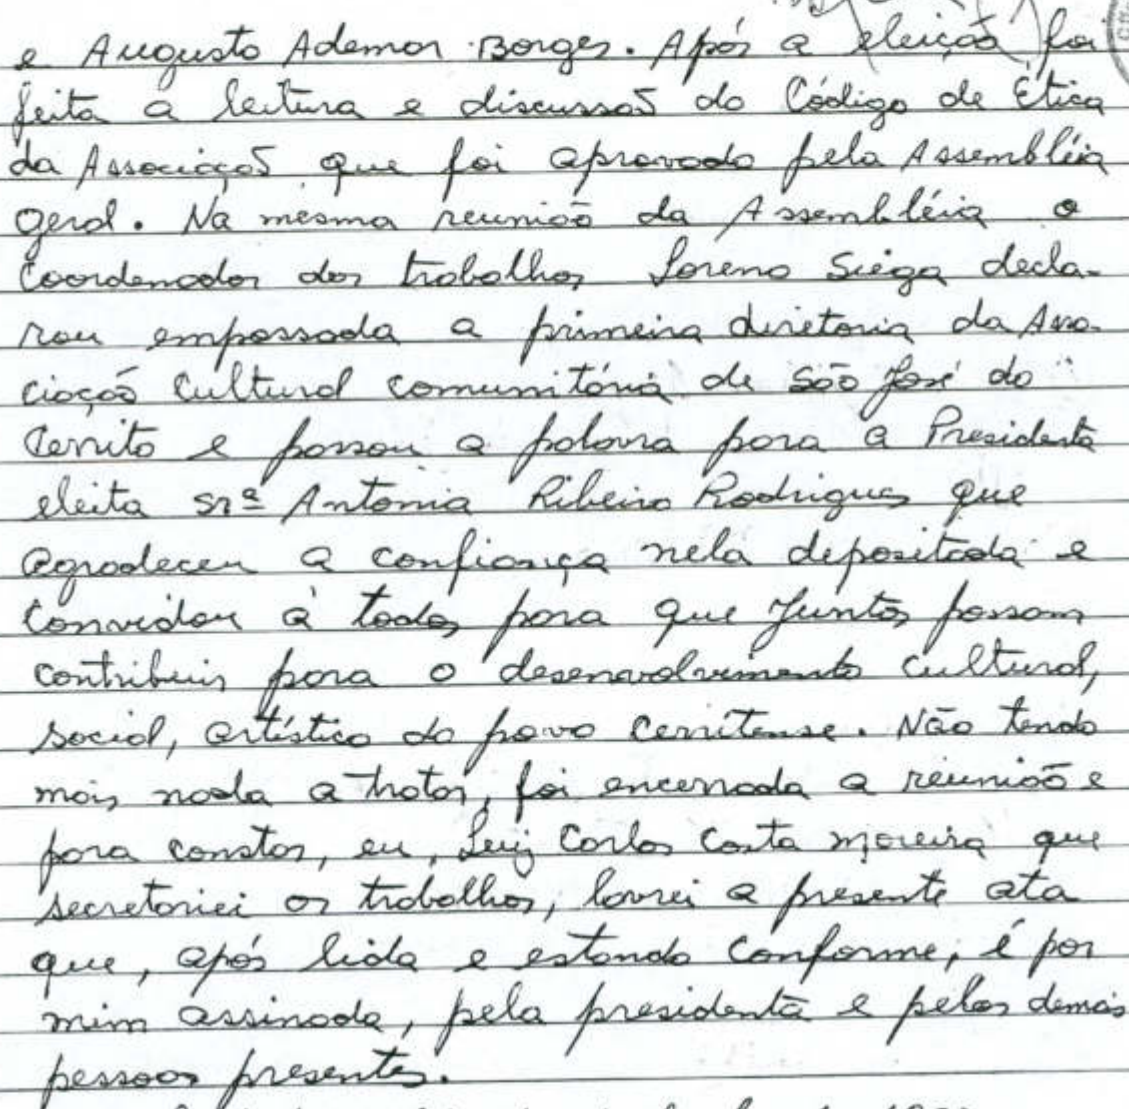 e Augusto Ademar Borges. Após a eleição foi
feita a leitura e discussão do Código de Ética
da Associação que foi aprovado pela Assembléia
Geral. Na mesma reunião da Assembléia o
Coordenador dos trabalhos Loreno Siega decla-
rou empossada a primeira diretoria da Asso-
ciação Cultural Comunitária de São José do
Cerrito e passou a palavra para a Presidenta
eleita Srª Antonia Ribeiro Rodrigues que
agradeceu a confiança nela depositada e
Convidou à todos para que juntos possam
contribuir para o desenvolvimento cultural,
social, artístico do povo Cerritense. Não tendo
mais nada a tratar, foi encerrada a reunião e
para constar, eu, Luiz Carlos Costa Moreira que
secretariei os trabalhos, lavrei a presente ata
que, após lida e estando Conforme, é por
mim assinada, pela presidenta e pelas demais
pessoas presentes.